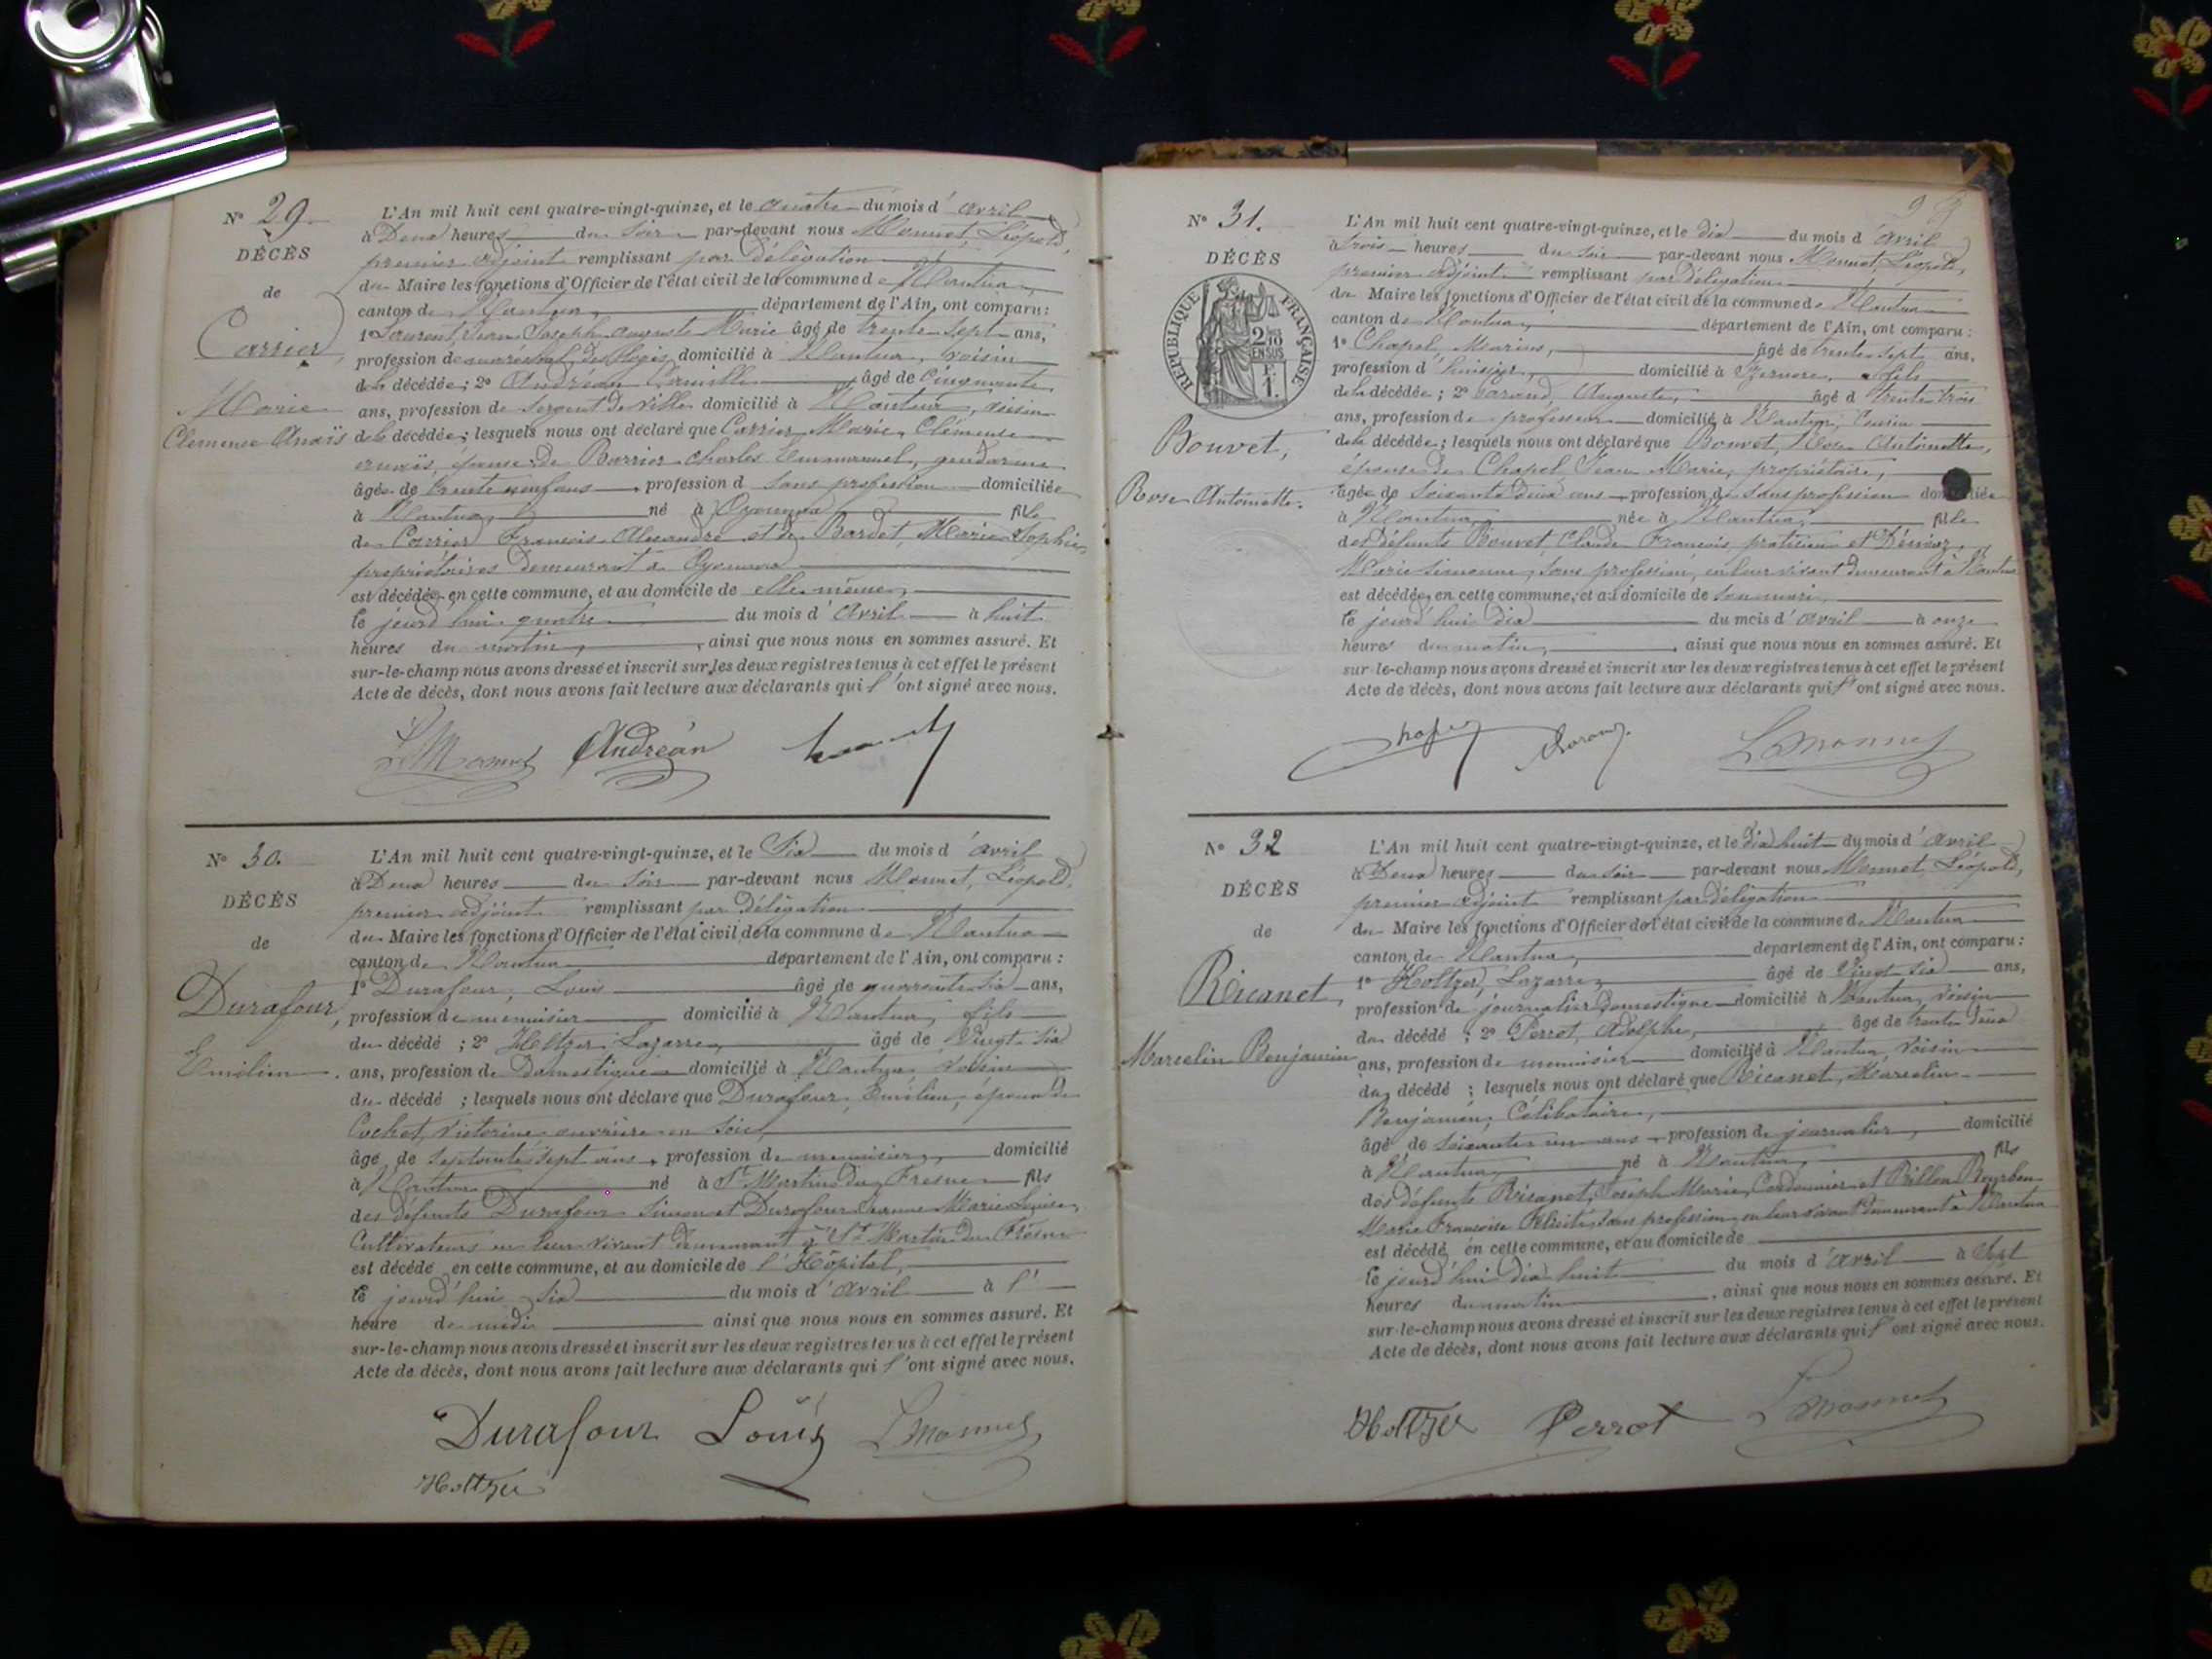 N° 29
DÉCÈS
de
Carrier
Marie
Clémence Anaïs
L'An mil huit cent quatre-vingt-quinze, et le quatre du mois d'avril
à Deux heures du soir par-devant nous Monnet, Léopold,
premier adjoint remplissant par délégation
du Maire les fonctions d'Officier de l'état civil de la commune de Nantua
canton de Nantua, département de l'Ain, ont comparu:
1° Laurent, Jean Joseph Auguste Marie âgé de trente sept ans,
profession de marechal des logis domicilié à Nantua, voisin
de la décédée; 2° Andréan Camille âgé de cinquante
ans, profession de sergent de ville domicilié à Nantua, voisin
de la décédée; lesquels nous ont déclaré que Carrier, Marie, Clémence
anaïs, épouse de Barrier Charles Emmanuel, gendarme
âgée de trente neuf ans, profession d sans profession domiciliée
à Nantua, né à Oyonnax fille
de Carrier François Alexandre et de Bardet, Marie Sophie,
propriétaires demeurant à Oyonnax
est décédée en cette commune, et au domicile de elle même,
le jourd'hui quatre du mois d'avril à huit
heures du matin, ainsi que nous nous en sommes assuré. Et
sur-le-champ nous avons dressé et inscrit sur les deux registres tenus à cet effet le présent
Acte de décès, dont nous avons fait lecture aux déclarants qui l'ont signé avec nous.
LMonnet Andréan
N° 30.
DÉCÈS
de
Durafour,
Emélien.
L'An mil huit cent quatre-vingt-quinze, et le Six du mois d'avril
à Deux heures du soir par-devant nous Monnet, Léopold,
premier adjoint remplissant par délégation
du Maire les fonctions d'Officier de l'état civil de la commune de Nantua
canton de Nantua département de l'Ain, ont comparu:
1° Durafour, Louis âgé de quarante six ans,
profession de menuisier domicilié à Nantua, fils
du décédé; 2° Holtzer Lazarre, âgé de Vingt six
ans, profession de Domestique domicilié à Nantua voisin
du décédé; lesquels nous ont déclaré que Durafour, Emélien, époux de
Cochet, Victorine ouvrière en soie,
âgé de septante sept ans, profession de menuisier, domicilié
à Nantua né à St Martin du Fresne fils
des défunts Durafour Simon et Durafour Jeanne Marie Louise,
Cultivateurs en leur vivant demeurant à St Martin du Fresne
est décédé en cette commune, et au domicile de l'Hôpital,
le jourd'hui six du mois d'avril à l'
heure de midi ainsi que nous nous en sommes assuré. Et
sur-le-champ nous avons dressé et inscrit sur les deux registres tenus à cet effet le présent
Acte de décès, dont nous avons fait lecture aux déclarants qui l'ont signé avec nous.
Durafour Louis LMonnet
Holtzer
N° 31.
DÉCÈS
RÉPUBLIQUE FRANÇAISE
2/10 EN SUS
1F.
Bouvet,
Rose Antoinette.
L'An mil huit cent quatre-vingt-quinze, et le dix du mois d'avril
à trois heures du soir par-devant nous Monnet, Léopold,
premier adjoint remplissant par délégation
du Maire les fonctions d'Officier de l'état civil de la commune de Nantua
canton de Nantua, département de l'Ain, ont comparu:
1° Chapel, Marius, âgé de trente sept ans,
profession d'huissier, domicilié à Izernore, fils
de la décédée; 2° Auguste, âgé d trente trois
ans, profession de professeur domicilié à Nantua, Cousin
de la décédée; lesquels nous ont déclaré que Bouvet, Rose Antoinette,
épouse de Chapel Jean Marie, propriétaire,
âgée de soixante deux ans, profession de sans profession domiciliée
à Nantua née à Nantua, fille
des défunts Bouvet Claude François, praticien et
Marie Simonne, sans profession, en leur vivant demeurant à Nantua
est décédée, en cette commune, et au domicile de son mari,
le jourd'hui dix du mois d'avril à onze
heures du matin, ainsi que nous nous en sommes assuré. Et
sur-le-champ nous avons dressé et inscrit sur les deux registres tenus à cet effet le présent
Acte de décès, dont nous avons fait lecture aux déclarants qui l'ont signé avec nous.
Chapel LMonnet
N° 32
DÉCÈS
de
Récanet,
Marcelin Benjamin
L'An mil huit cent quatre-vingt-quinze, et le dix huit du mois d'avril
à Deux heures du soir par-devant nous Monnet, Léopold,
premier adjoint remplissant par délégation
du Maire les fonctions d'Officier de l'état civil de la commune de Nantua
canton de Nantua, département de l'Ain, ont comparu:
1° Holtzer, Lazarre, âgé de Vingt six ans,
profession de journalier domestique domicilié à Nantua, voisin
du décédé; 2° Perrot, Adolphe, âgé de trente deux
ans, profession de menuisier domicilié à Nantua, voisin
du décédé; lesquels nous ont déclaré que Récanet, Marcelin
Benjamin, Célibataire,
âgé de soixante un ans, profession de journalier, domicilié
à Nantua, né à Nantua, fils
des défunts Récanet, Joseph Marie, Cordonnier et Billon Bourbon
Marie Françoise Félicité, sans profession, en leur vivant demeurant à Nantua
est décédé en cette commune, et au domicile de
le jourd'hui dix huit du mois d'avril à sept
heures du matin, ainsi que nous nous en sommes assuré. Et
sur-le-champ nous avons dressé et inscrit sur les deux registres tenus à cet effet le présent
Acte de décès, dont nous avons fait lecture aux déclarants qui l'ont signé avec nous.
Holtzer Perrot LMonnet